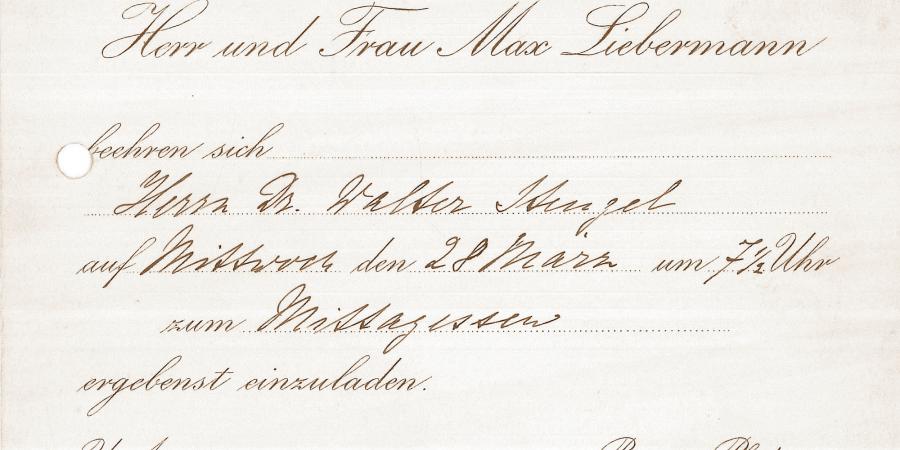 Herr und Frau Max Liebermann
beehren sich
Herrn Dr. Walter Stengel
auf Mittwoch den 28 März um 7½ Uhr
zum Mittagessen
ergebenst einzuladen.